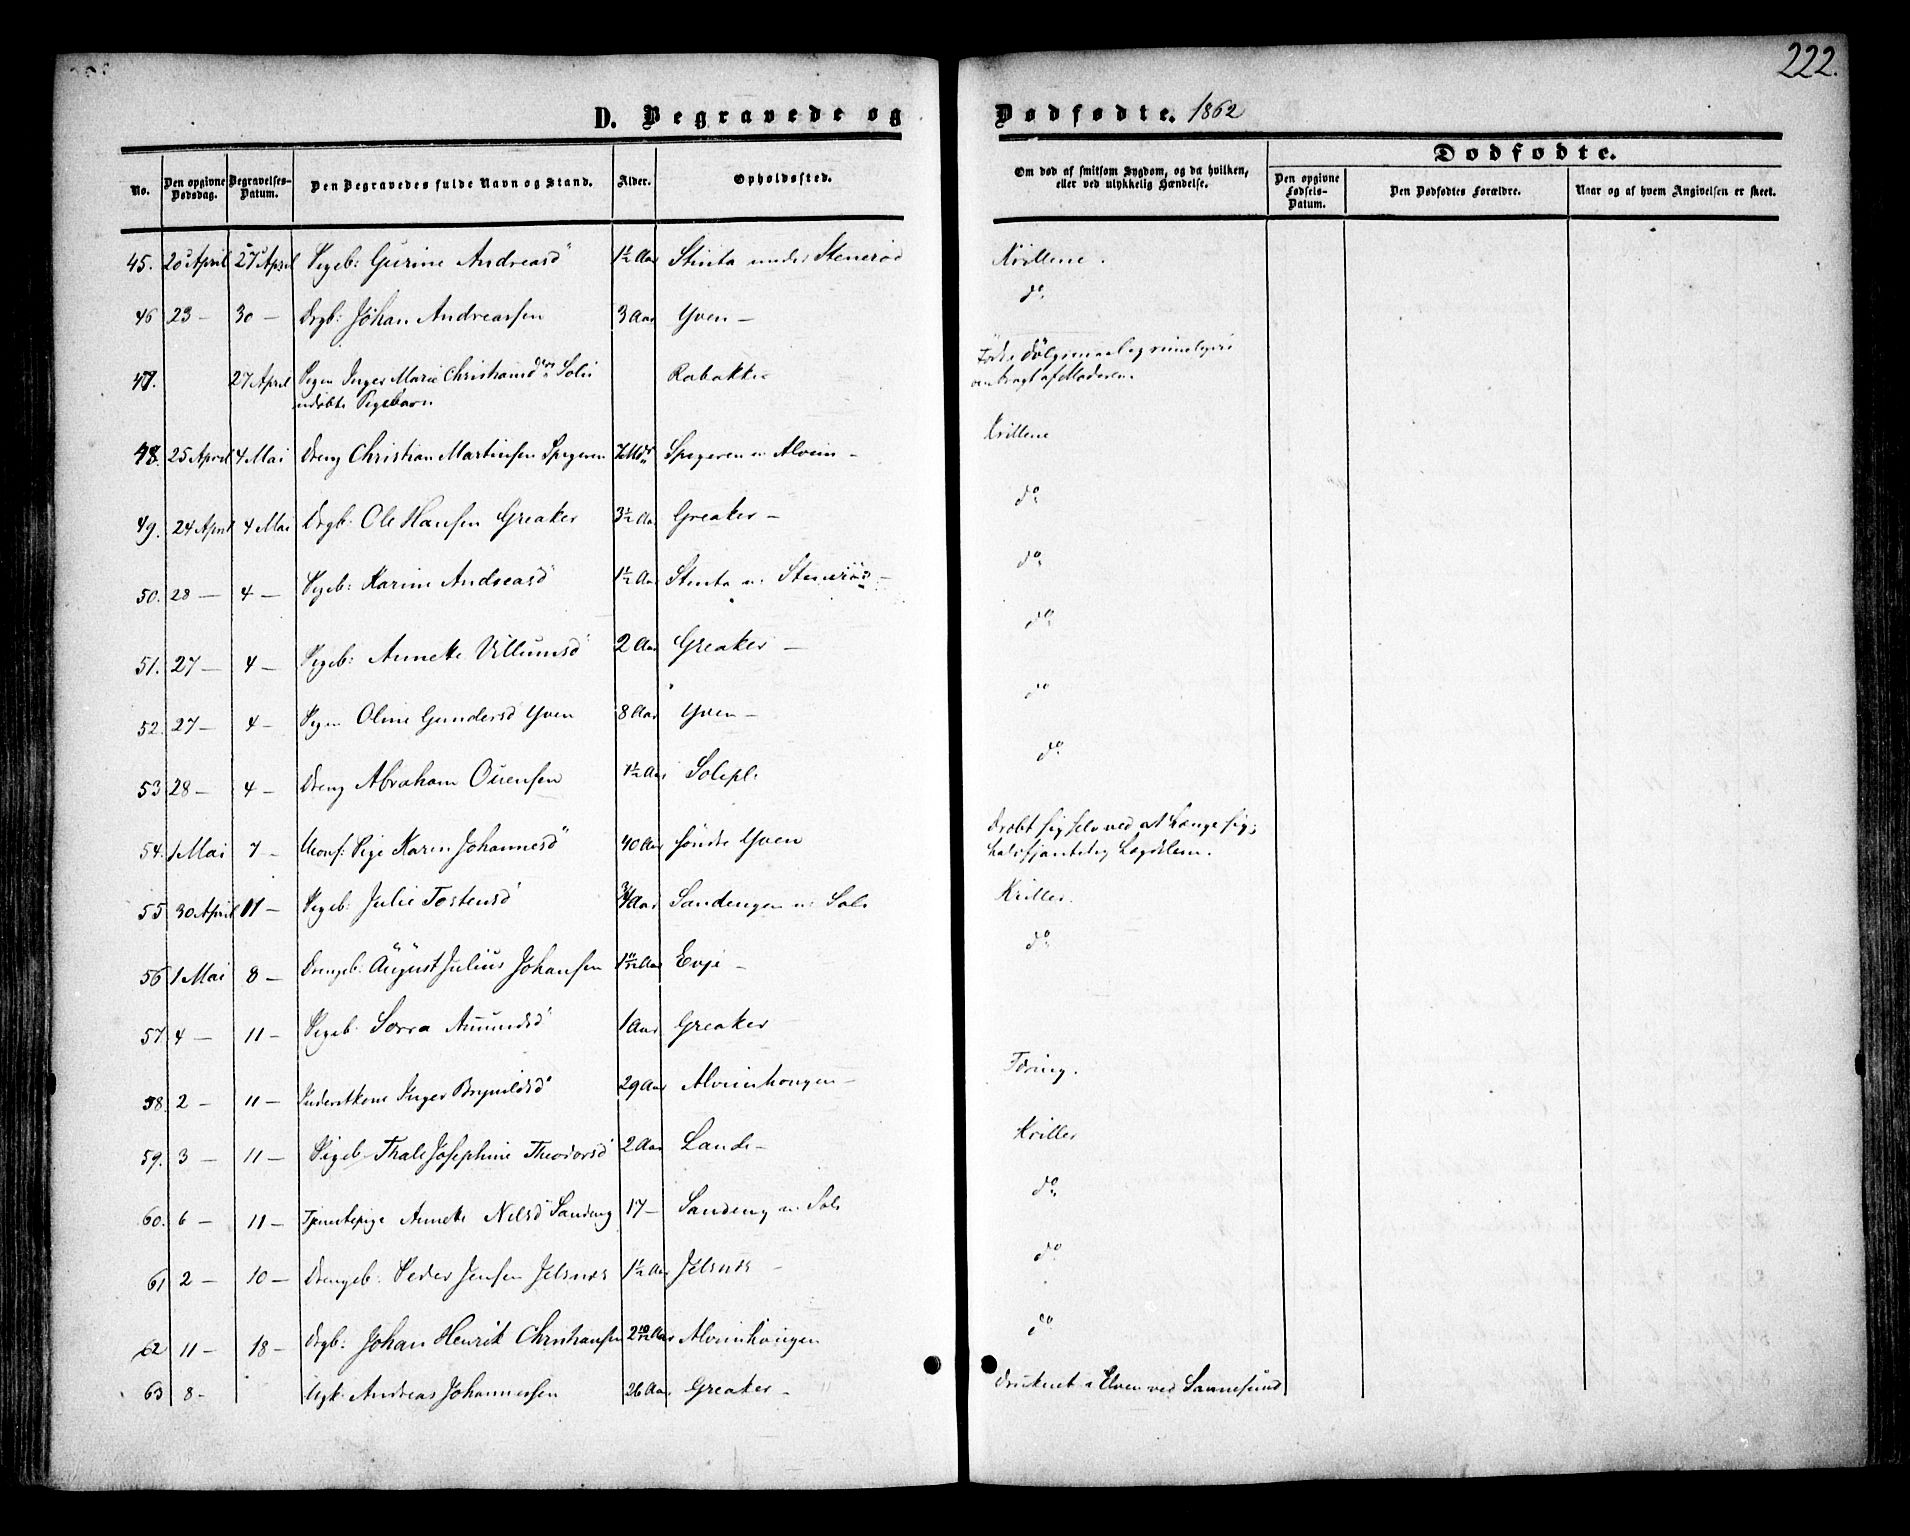 222.
D. Begravede og Dødfødte. 1862
No.
Den opgivne Dødsdag.
Begravelses-Datum.
Den Begravedes fulde Navn og Stand.
Alder.
Opholdssted.
Om død af smitsom Sygdom, og da hvilken, eller ved ulykkelig Hændelse.
Dødfødte.
Den opgivne Fødsels-Datum.
Den Dødfødtes Forældre.
Naar og af hvem Angivelsen er skeet.
45. 20 April 27 April Pigeb: Gurine Andreasd 1½ Aar Stinta under Stenerød Krillene.
46 23 — 30 — Drgb: Johan Andreassen 3 Aar Yven — do
47. 27 April Pigen Inger Marie Christiansd Solii Rabakke Født i Dølgsmaal og rimeligvis
udøbte Pigebarn af Moderen.
48. 25 April 4 Mai Dreng Christian Martinsen Spigeren Spigeren u Alvim — Krillene
49. 24 April 4 Mai Drgb: Ole Hansen Greaker 3½ Aar Greaker — do
50. 28 — 4 — Pigeb: Karine Andreasd 1½ Aar Stinta u: Stenerød — do
51. 27 — 4 — Pigeb: Annette Villumsd 2 Aar Greaker — do
52. 27 — 4 — Pigen Oline Gundersd Yven 8 Aar Yven — do
53 28 — 4 — Dreng Abraham Ouensen 1½ Aar Solepl. do
54. 1 Mai 7 — Pige Karen Johannesd 40 Aar Søndre Yven Dræbt sig selv ved at hænge sig;
halvfjantelig Lægdslem.
55 30 April 11 — Pigeb: Julie Tostensd ¾ Aar Sandengen u: Soli Kriller.
56 1 Mai 8 — Drengeb: August Julius Johansen 1 10/12 Aar Evje — do
57. 4 — 11 — Pigeb: Sorra Amundsd 1 Aar Greaker
58. 2 — 11 — Inderstkone Inger Brynildsd 29 Aar Alvimhougen — Tæring.
59. 3 — 11 — Pigeb Thale Josephine Theodorsd 2 Aar Lande — Kriller
60. 6 — 11 — Tjenestepige Annette Nilsd Sandeng 17 — Sandeng u. Soli do
61 2 — 10 — Drengeb: Peder Jensen Jelsnes 1½ Aar Jelsnes — do
62 11 — 18 — Drgb: Johan Henrik Christiansen 2 10/12 Aar Alvimhougen do
63 8 — Ugk: Andreas Johannessen 26 Aar Greaker — Druknet i Elven ved Sannesund